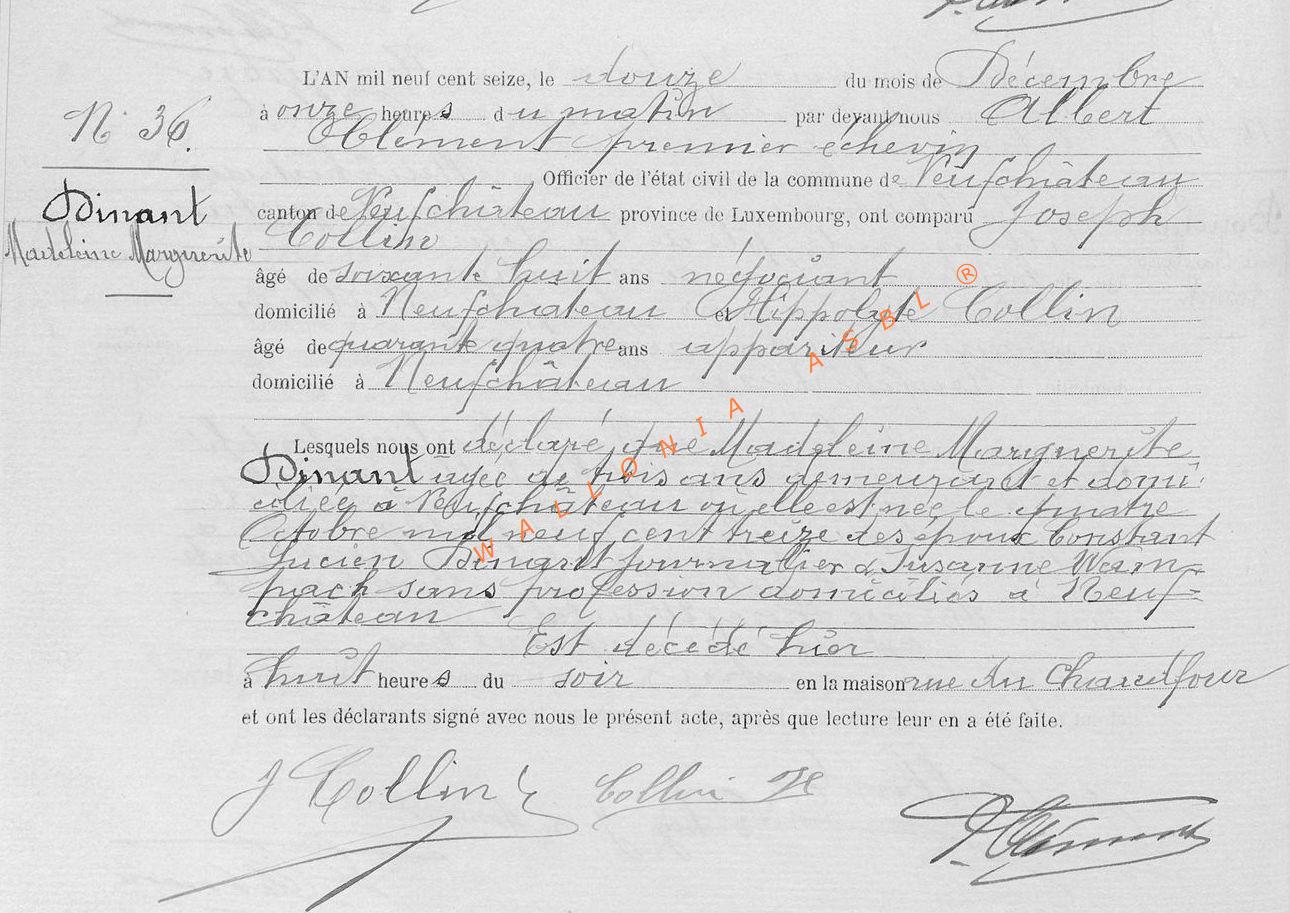 L'AN mil neuf cent seize, le douze du mois de Décembre
N° 36.
à onze heures du matin par devant nous Albert
Clément premier échevin
Officier de l'état civil de la commune de Neufchâteau
Dinant
Madeleine Marguerite
canton de Neufchâteau province de Luxembourg, ont comparu Joseph
Collin
âgé de soixante huit ans négociant
domicilié à Neufchateau et Hippolyte Collin
âgé de quarante quatre ans appariteur
domicilié à Neufchâteau
Lesquels nous ont déclaré que Madeleine Marguerite
Dinant agée de trois ans demeurant et domi-
ciliée à Neufchâteau où elle est née le quatre
Octobre mil neuf cent treize des époux Constant
Lucien Dinant journalier & Susanne Wam-
pach sans profession domiciliés à Neuf-
château
Est décédé hier
à huit heures du soir en la maison rue du Chaudfour
et ont les déclarants signé avec nous le présent acte, après que lecture leur en a été faite.
J Collin Collin H
Clément
WALLONIA ASBL ®